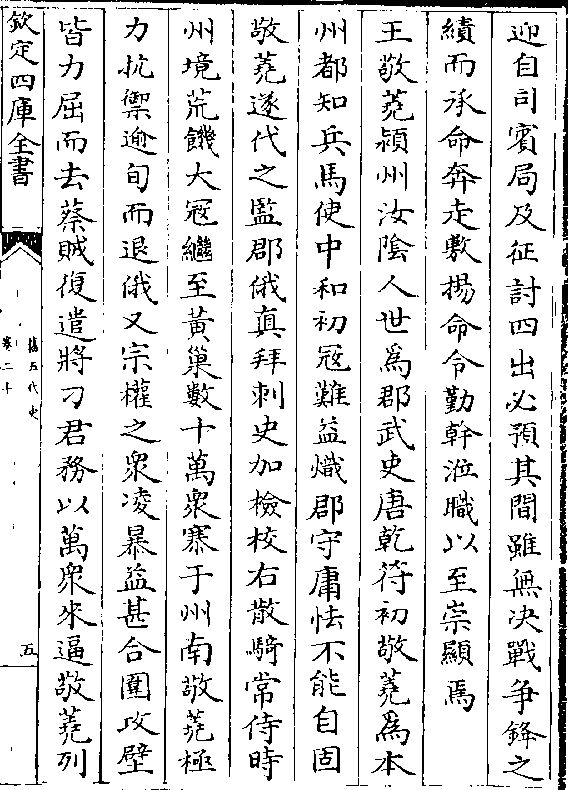 迎自司賓局及征討四出必預其間雖無決戰爭鋒之
績而承命奔走敷揚命令勤幹涖職以至崇顯焉
王敬蕘潁州汝陰人世為郡武吏唐乾符初敬蕘為本
州都知兵馬使中和初冦難益熾郡守庸怯不能自固
敬蕘遂代之監郡俄真拜刺史加檢校右散騎常侍時
州境荒饑大冦繼至黃巢數十萬衆寨于州南敬蕘極
力抗禦逾旬而退俄又宗權之衆凌暴益甚合圍攻壁
皆力屈而去蔡賊復遣將刁君務以萬衆來逼敬蕘列
欽定四庫全書
舊五代史
卷二十
五